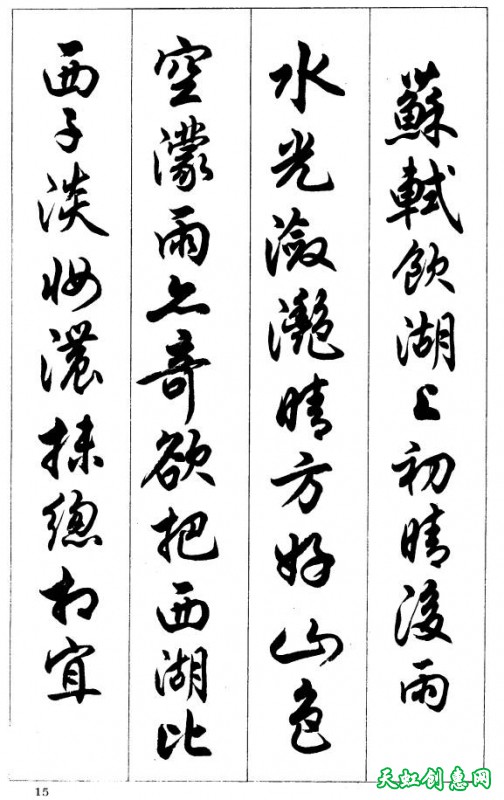 蘇軾飲湖上初晴後雨
水光瀲灧晴方好山色
空濛雨亦奇欲把西湖比
西子淡妝濃抹總相宜
15
天虹创惠网